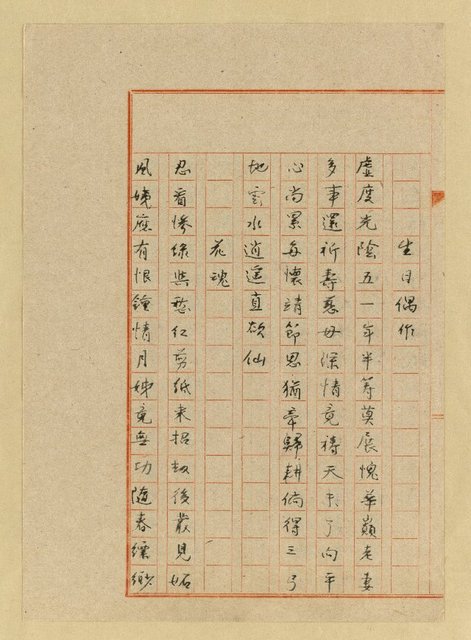 生日偶作
虛度光陰五一年半籌莫展愧華巔老妻
多事還祈壽慈母深情竟禱天未了向平
心尚累每懷靖節思猶牽歸耕倘得三弓
地雲水逍遙直欲仙
花魂
忍看慘綠與愁紅剪紙來招劫後叢見妬
風姨應有恨鍾情月姊竟無功隨春縹緲